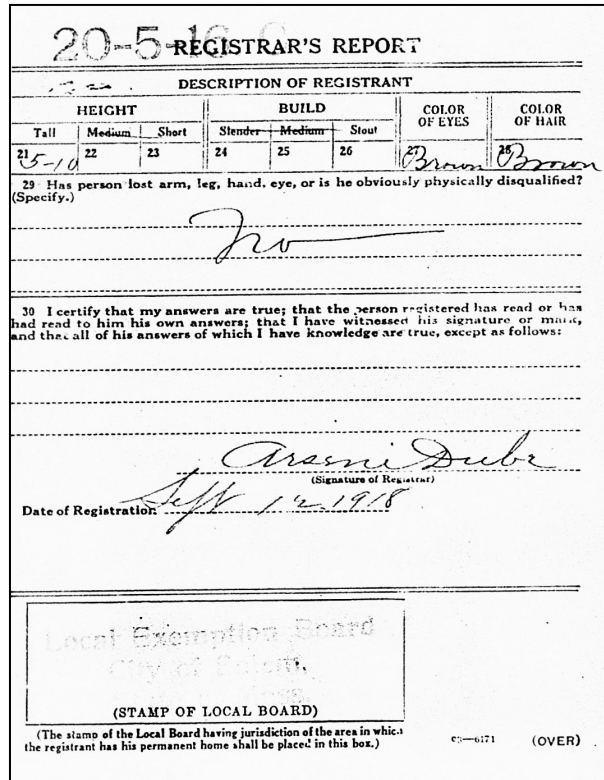 20-5-16 C
REGISTRAR'S REPORT
DESCRIPTION OF REGISTRANT
HEIGHT BUILD COLOR OF EYES COLOR OF HAIR
Tall Medium Short Slender Medium Stout
21 5-10 22 23 24 25 26 27 Brown 28 Brown
29 Has person lost arm, leg, hand, eye, or is he obviously physically disqualified?
(Specify.)
No
30 I certify that my answers are true; that the person registered has read or has
had read to him his own answers; that I have witnessed his signature or mark,
and that all of his answers of which I have knowledge are true, except as follows:
Arsene Dube
(Signature of Registrar)
Date of Registration Sept 12 1918
Local Exemption Board
City of Salem,
(STAMP OF LOCAL BOARD)
(The stamp of the Local Board having jurisdiction of the area in which
the registrant has his permanent home shall be placed in this box.)
03—6171 (OVER)